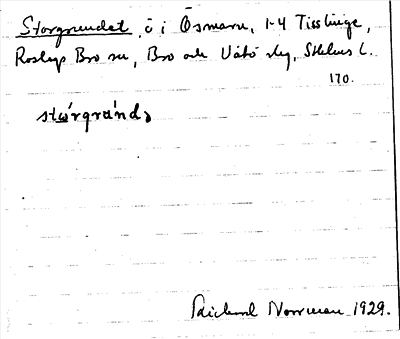 Storgrundet, ö i Ösmaren, 1-4 Tisslinge,
Roslags Bro sn, Bro och Vätö skg, Sthlms l.
170.
stɷ́rgrún̄də
Rickard Norrman 1929.